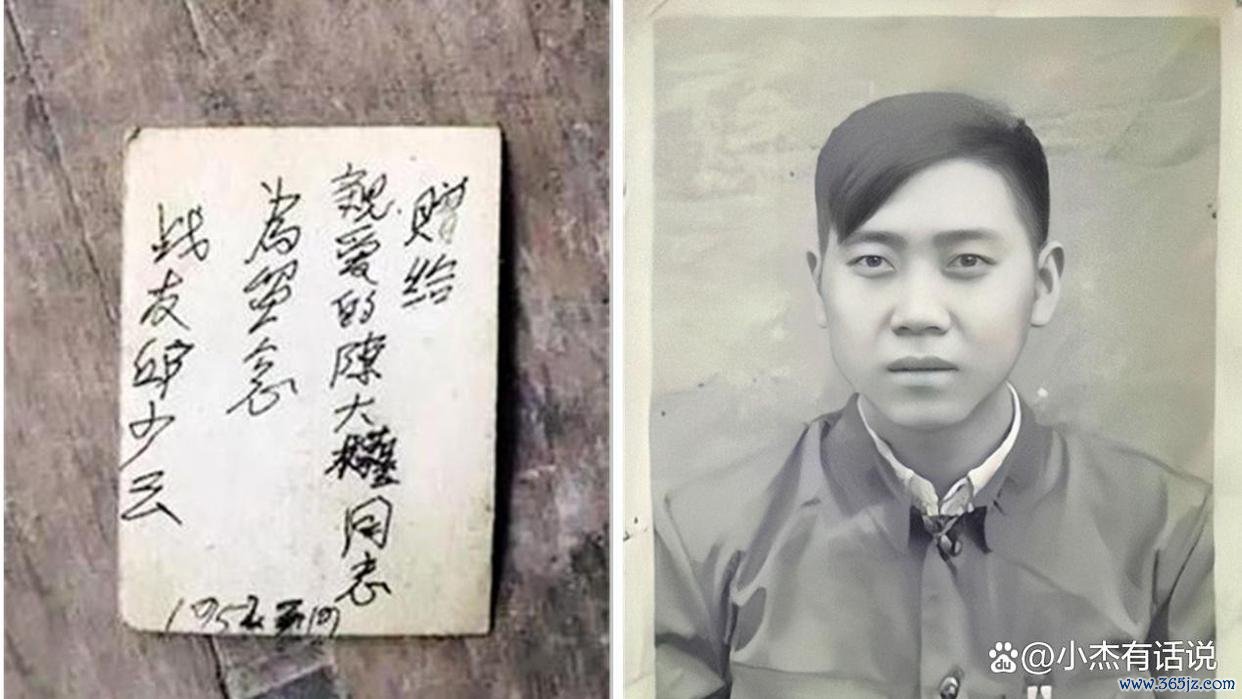 赠给
親爱的陳大同志
為留念
战友邱少云
1952
du @小杰有话说
www.365jz.com